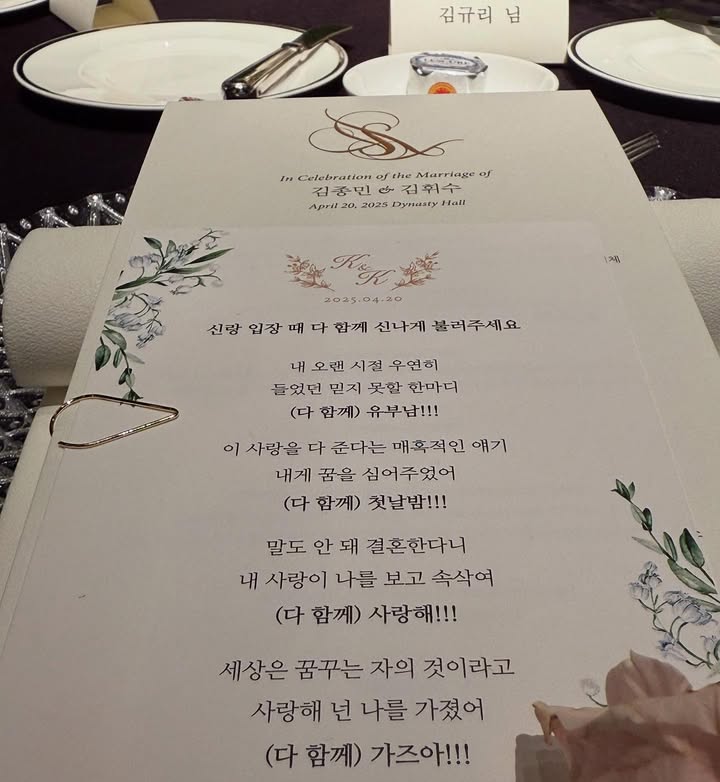 김규리 님
In Celebration of the Marriage of
김종민 & 김휘수
April 20, 2025 Dynasty Hall
K & K
2025.04.20
신랑 입장 때 다 함께 신나게 불러주세요
내 오랜 시절 우연히
들었던 믿지 못할 한마디
(다 함께) 유부남!!!
이 사랑을 다 준다는 매혹적인 얘기
내게 꿈을 심어주었어
(다 함께) 첫날밤!!!
말도 안 돼 결혼한다니
내 사랑이 나를 보고 속삭여
(다 함께) 사랑해!!!
세상은 꿈꾸는 자의 것이라고
사랑해 넌 나를 가졌어
(다 함께) 가즈아!!!